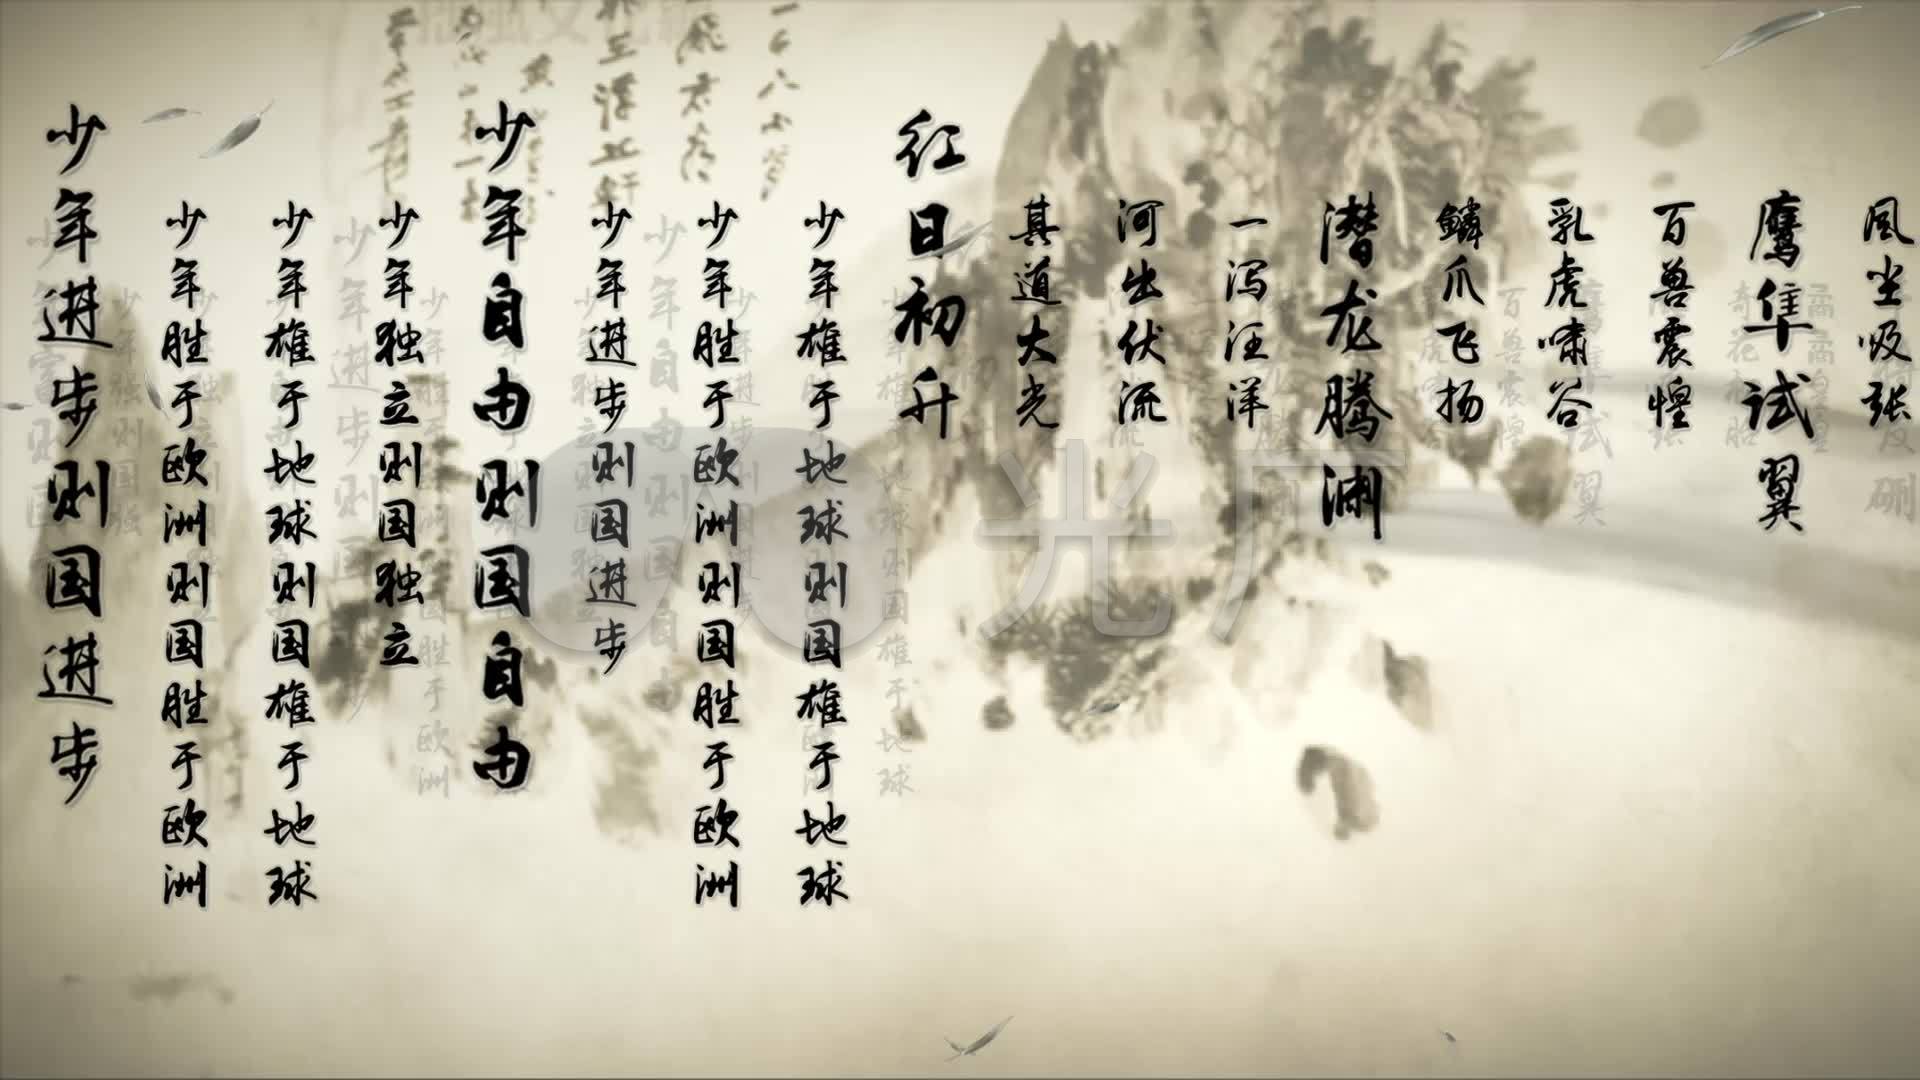 少年进步则国进步
少年胜于欧洲则国胜于欧洲
少年雄于地球则国雄于地球
少年独立则国独立
少年自由则国自由
少年进步则国进步
少年胜于欧洲则国胜于欧洲
少年雄于地球则国雄于地球
红日初升
其道大光
河出伏流
一泻汪洋
潜龙腾渊
鳞爪飞扬
乳虎啸谷
百兽震惶
鹰隼试翼
风尘吸张
光厂